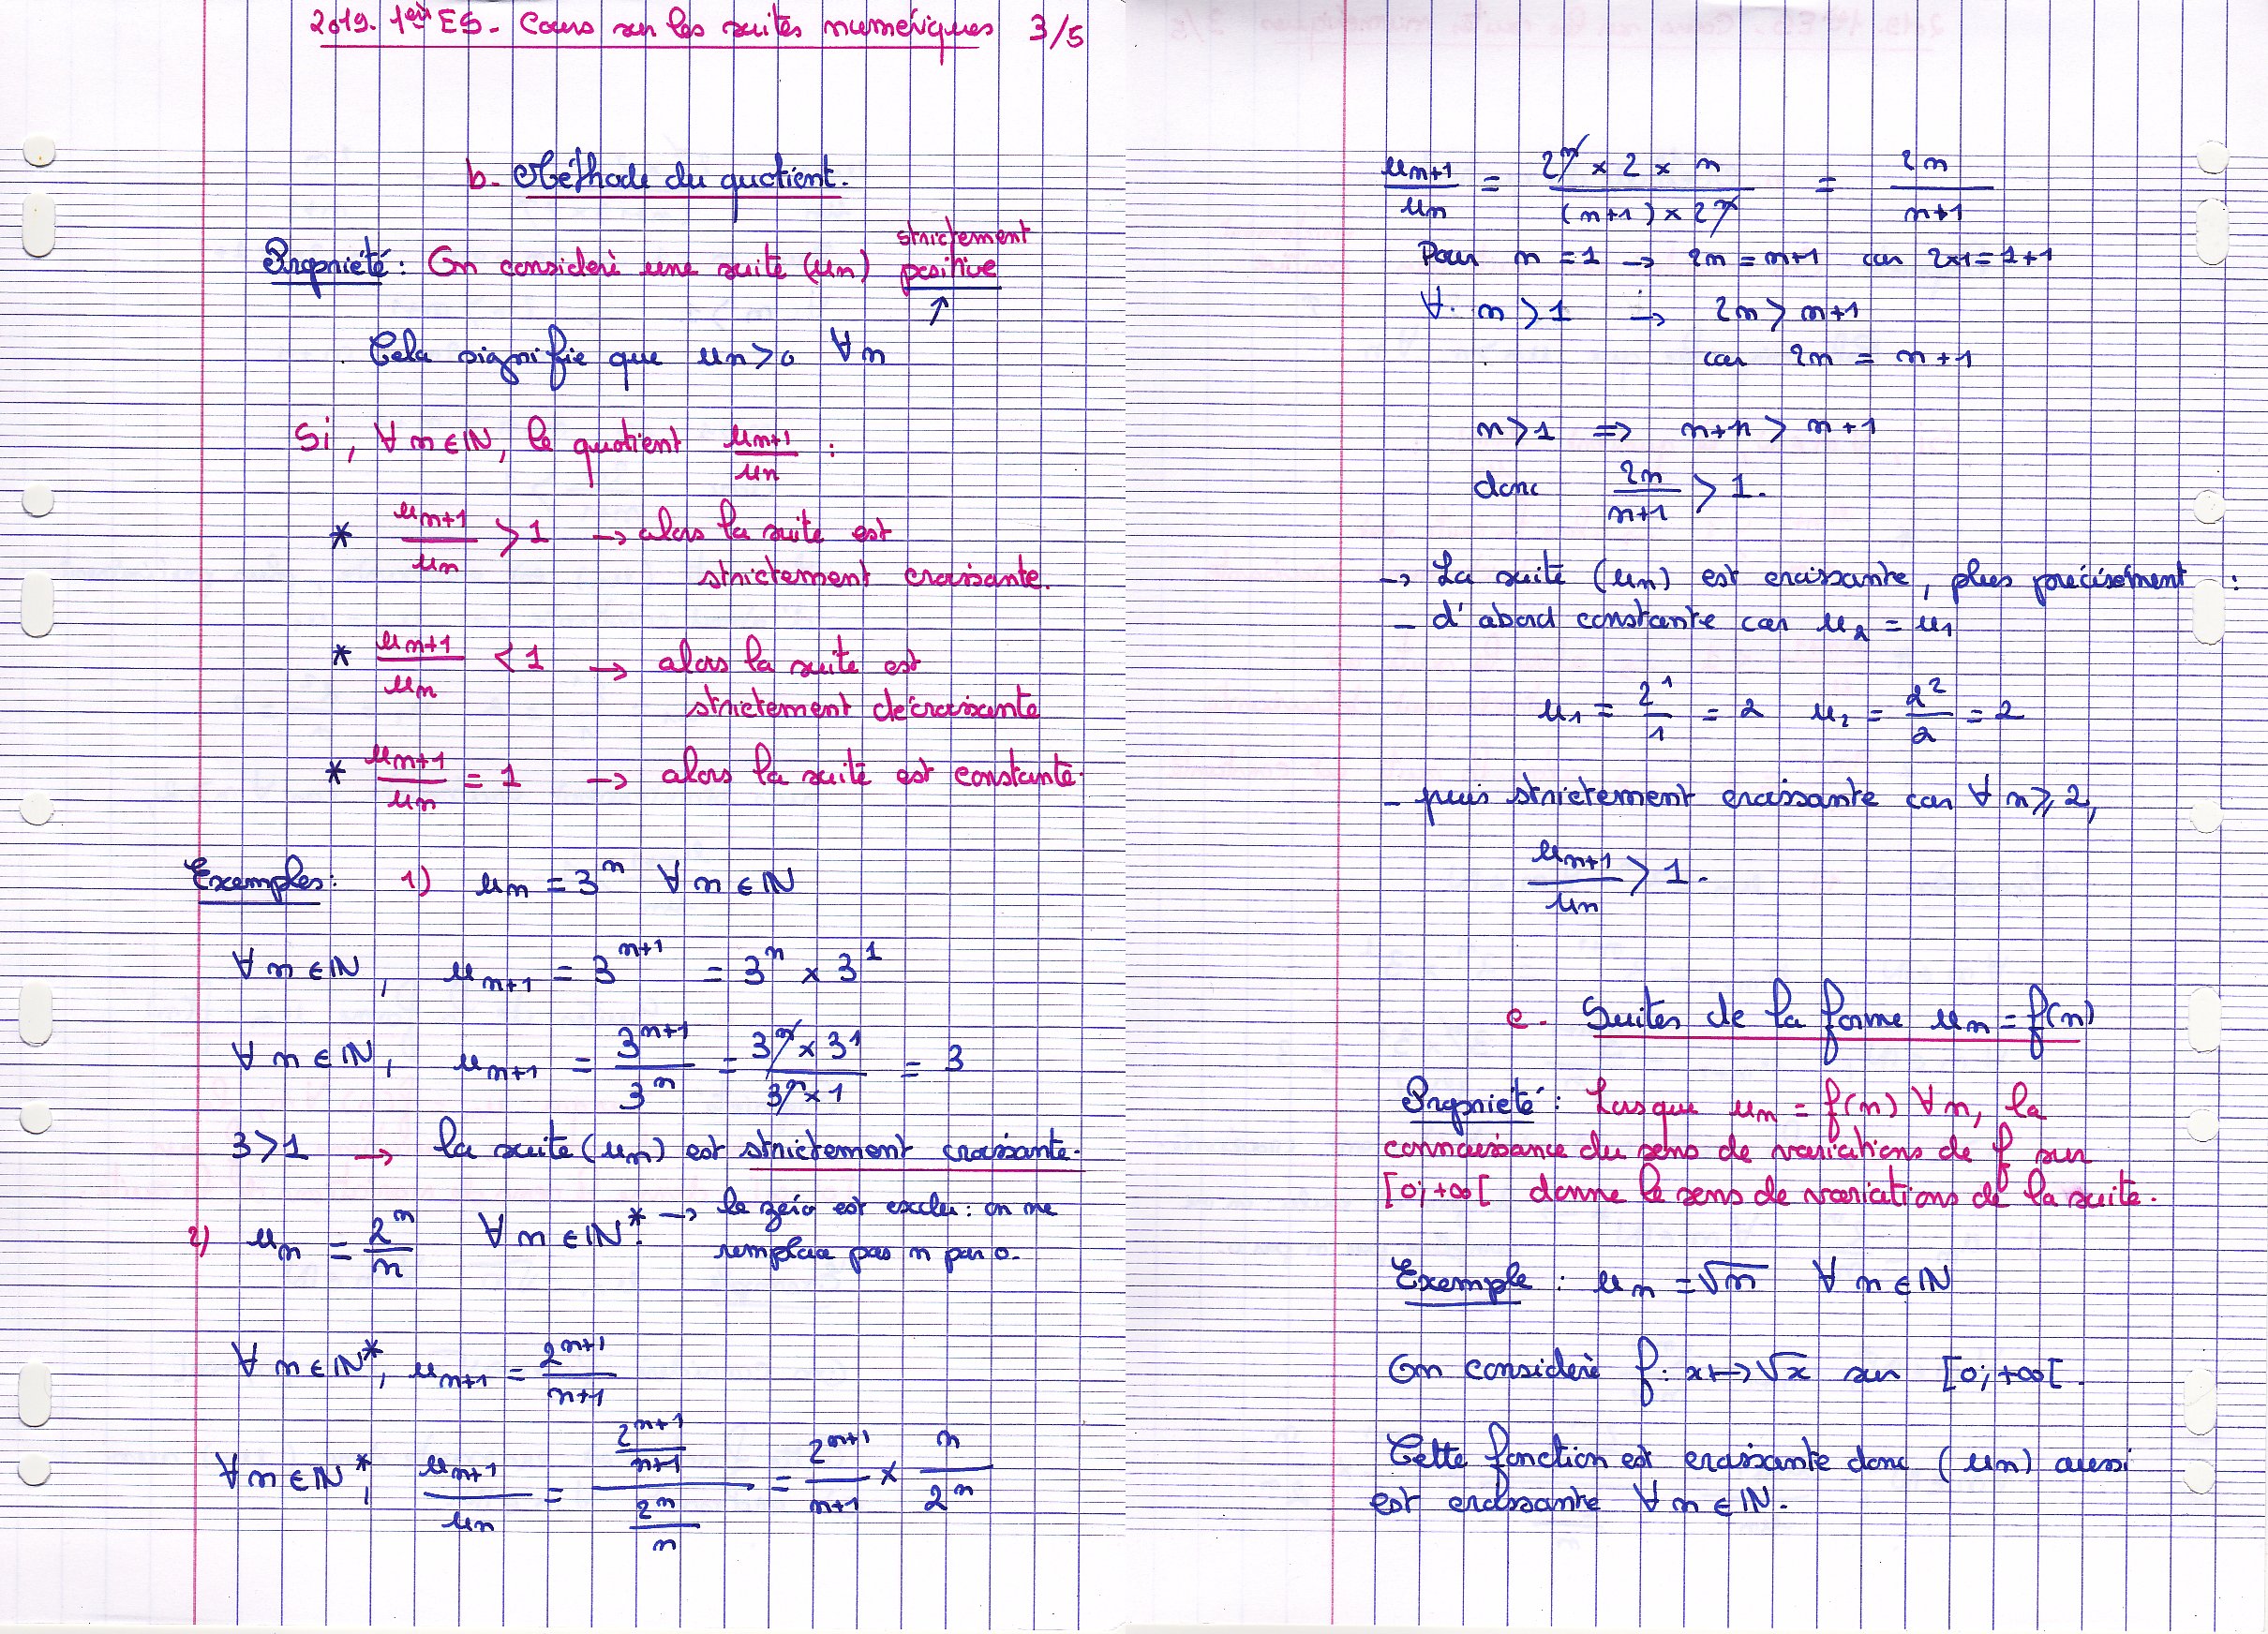 2019. 1ère ES. Cours sur les suites numériques 3/5
b. Méthode du quotient.
Propriété : On considère une suite (un) strictement positive
↑
Cela signifie que un > 0 ∀n
Si, ∀ n ∈ ℕ, le quotient un+1/un :
* un+1/un > 1 → alors la suite est
strictement croissante.
* un+1/un < 1 → alors la suite est
strictement décroissante
* un+1/un = 1 → alors la suite est constante.
Exemples : 1) un = 3^n ∀ n ∈ ℕ
∀ n ∈ ℕ, un+1 = 3^(n+1) = 3^n × 3^1
∀ n ∈ ℕ, un+1 = 3^(n+1)/3^n = (3^n × 3^1)/(3^n × 1) = 3
3 > 1 → la suite (un) est strictement croissante.
2) un = 2^n/n ∀ n ∈ ℕ*. → le zéro est exclu : on ne
remplace pas n par 0.
∀ n ∈ ℕ*, un+1 = 2^(n+1)/(n+1)
∀ n ∈ ℕ*, un+1/un = (2^(n+1)/(n+1))/(2^n/n) = 2^(n+1)/(n+1) × n/2^n
un+1/un = (2^n × 2 × n)/((n+1) × 2^n) = 2n/(n+1)
Pour n = 1 → 2n = n+1 car 2×1 = 1+1
∀ n > 1 → 2n > n+1
car 2n = n+1
n > 1 ⇒ n+n > n+1
donc 2n/(n+1) > 1.
→ La suite (un) est croissante, plus précisément :
- d'abord constante car u2 = u1
u1 = 2^1/1 = 2 u2 = 2^2/2 = 2
- puis strictement croissante car ∀ n ⩾ 2,
un+1/un > 1.
c. Suites de la forme un = f(n)
Propriété : Lorsque un = f(n) ∀n, la
connaissance du sens de variations de f sur
[0;+∞[ donne le sens de variations de la suite.
Exemple : un = √n ∀ n ∈ ℕ
On considère f : x ↦ √x sur [0;+∞[.
Cette fonction est croissante donc (un) aussi
est croissante ∀ n ∈ ℕ.